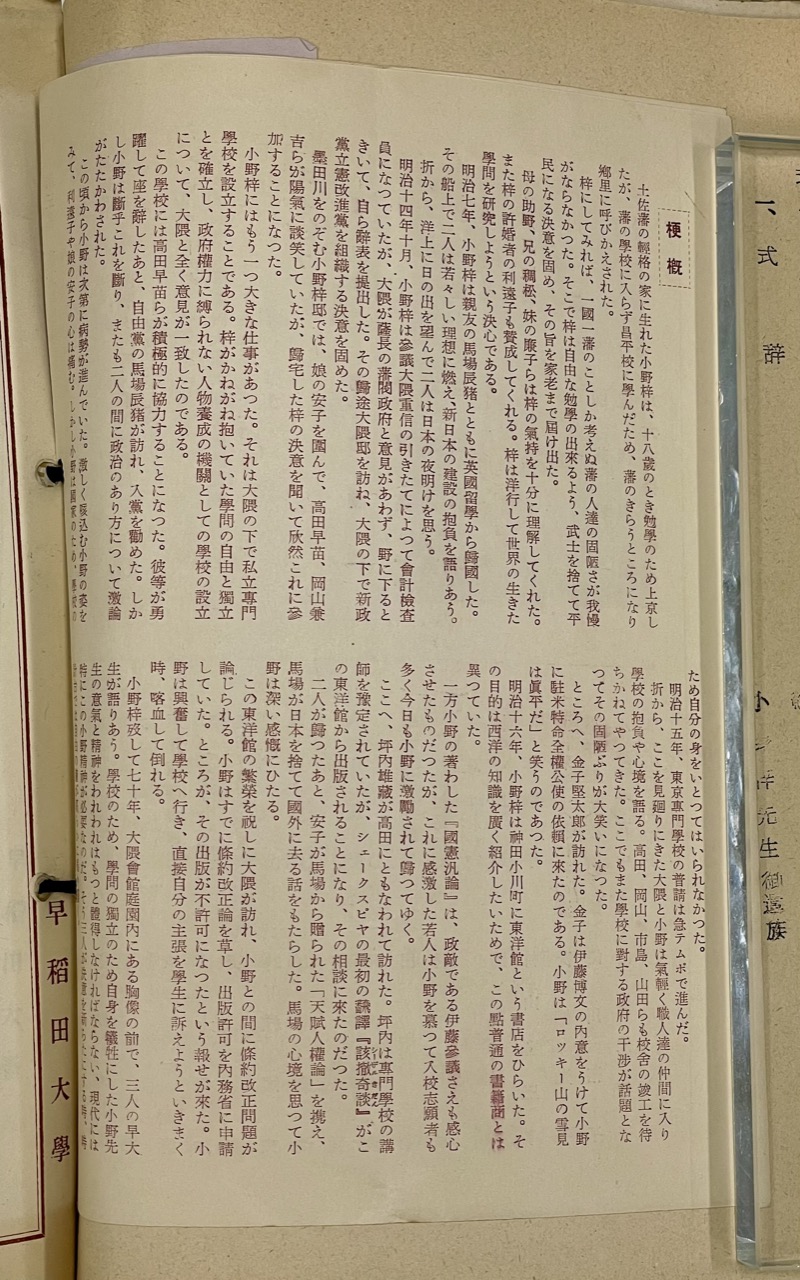 梗概
土佐藩の輕格の家に生れた小野梓は、十八歲のとき勉學のため上京し
たが、藩の學校に入らず昌平校に學んだため、藩のきらうところになり
鄕里に呼びかえされた。
梓にしてみれば、一國一藩のことしか考えぬ藩の人達の固陋さが我慢
がならなかつた。そこで梓は自由な勉學の出來るよう、武士を捨てて平
民になる決意を固め、その旨を家老まで屆け出た。
母の助野、兄の稠松、妹の廉子らは梓の氣持を十分に理解してくれた。
また梓の許婚者の利遠子も贊成してくれる。梓は洋行して世界の生きた
學問を硏究しようという決心である。
明治七年、小野梓は親友の馬場辰猪とともに英國留學から歸國した。
その船上で二人は若々しい理想に燃え、新日本の建設の抱負を語りあう。
折から、洋上に日の出を望んで二人は日本の夜明けを思う。
明治十四年十月、小野梓は參議大隈重信の引きたてによつて會計檢査
員になつていたが、大隈が薩長の藩閥政府と意見があわず、野に下ると
きいて、自ら辭表を提出した。その歸途大隈邸を訪ね、大隈の下で新政
黨立憲改進黨を組織する決意を固めた。
墨田川をのぞむ小野梓邸では、娘の安子を圍んで、高田早苗、岡山兼
吉らが陽氣に談笑していたが、歸宅した梓の決意を聞いて欣然これに參
加することになつた。
小野梓にはもう一つ大きな仕事があつた。それは大隈の下で私立專門
學校を設立することである。梓がかねがね抱いていた學問の自由と獨立
とを確立し、政府權力に縛られない人物養成の機關としての學校の設立
について、大隈と全く意見が一致したのである。
この學校には高田早苗らが積極的に協力することになつた。彼等が勇
躍して座を辭したあと、自由黨の馬場辰猪が訪れ、入黨を勸めた。しか
し小野は斷乎これを斷り、またも二人の間に政治のあり方について激論
がたたかわされた。
この頃から小野は次第に病勢が進んでいた。激しく咳込む小野の姿を
みて、利遠子や娘の安子の心は痛む。しかし小野は國家のため、學校の
ため自分の身をいとつてはいられなかつた。
明治十五年、東京專門學校の普請は急テムポで進んだ。
折から、ここを見廻りにきた大隈と小野は氣輕く職人達の仲間に入り
學校の抱負や心境を語る。高田、岡山、市島、山田らも校舍の竣工を待
ちかねてやつてきた。ここでもまた學校に對する政府の干涉が話題とな
つてその固陋ぶりが大笑いになつた。
ところへ、金子堅太郎が訪れた。金子は伊藤博文の內意をうけて小野
に駐米特命全權公使の依賴に來たのである。小野は「ロッキー山の雪見
は眞平だ」と笑うのであつた。
明治十六年、小野梓は神田小川町に東洋館という書店をひらいた。そ
の目的は西洋の知識を廣く紹介したいためで、この點普通の書籍商とは
異つていた。
一方小野の著わした『國憲汎論』は、政敵である伊藤參議さえも感心
させたものだつたが、これに感激した若人は小野を慕つて入校志願者も
多く今日も小野に激勵されて歸つてゆく。
ここへ、坪內雄藏が高田にともなわれて訪れた。坪內は專門學校の講
師を豫定されていたが、シェークスピヤの最初の飜譯『該撒奇談』がこ
の東洋館から出版されることになり、その相談に來たのだつた。
二人が歸つたあと、安子が馬場から贈られた「天賦人權論」を携え、
馬場が日本を捨てて國外に去る話をもたらした。馬場の心境を思つて小
野は深い感慨にひたる。
この東洋館の繁榮を祝しに大隈が訪れ、小野との間に條約改正問題が
論じられる。小野はすでに條約改正論を草し、出版許可を內務省に申請
していた。ところが、その出版が不許可になつたという報せが來た。小
野は興奮して學校へ行き、直接自分の主張を學生に訴えようといきまく
時、喀血して倒れる。
小野梓歿して七十年、大隈會館庭園內にある胸像の前で、三人の早大
生が語りあう。學校のため、學問の獨立のため自身を犧牲にした小野先
生の意氣と精神をわれわれはもつと體得しなければならない、現代には
特にこの小野精神が必要なのだ。
早稻田大學
一、式辭
小野梓先生御遺族